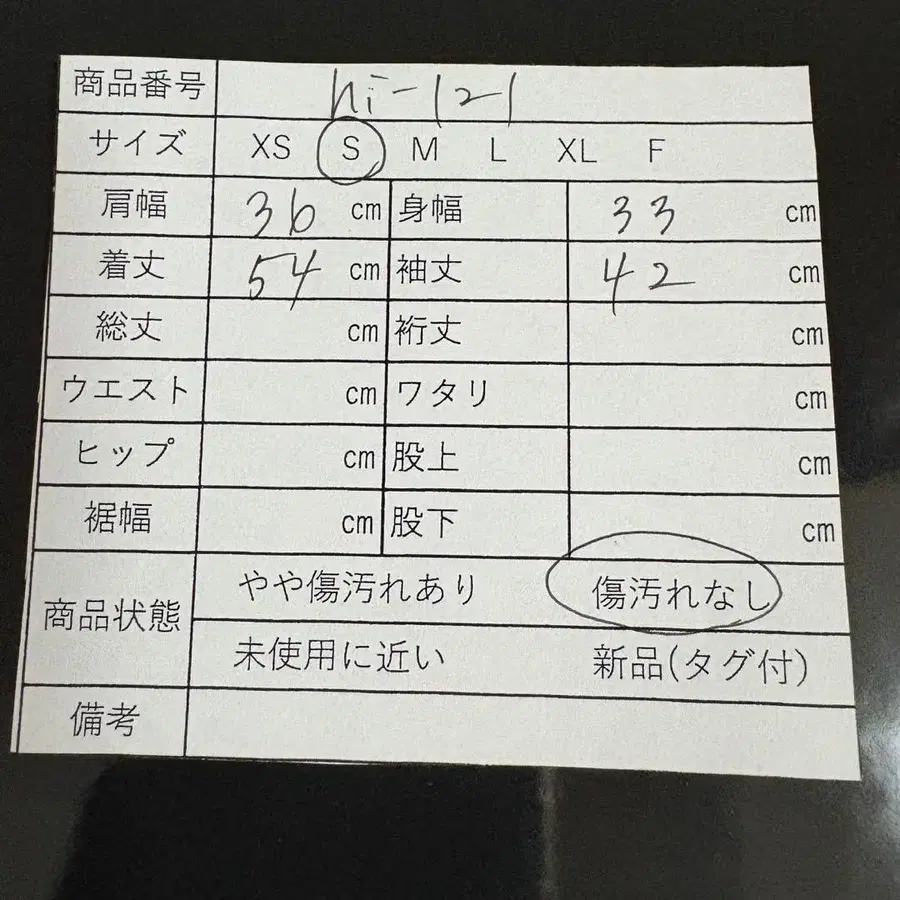 商品番号 hi-121
サイズ XS S M L XL F
肩幅 36 cm 身幅 33 cm
着丈 54 cm 袖丈 42 cm
総丈 cm 裄丈 cm
ウエスト cm ワタリ cm
ヒップ cm 股上 cm
裾幅 cm 股下 cm
商品状態 やや傷汚れあり 傷汚れなし
未使用に近い 新品(タグ付)
備考